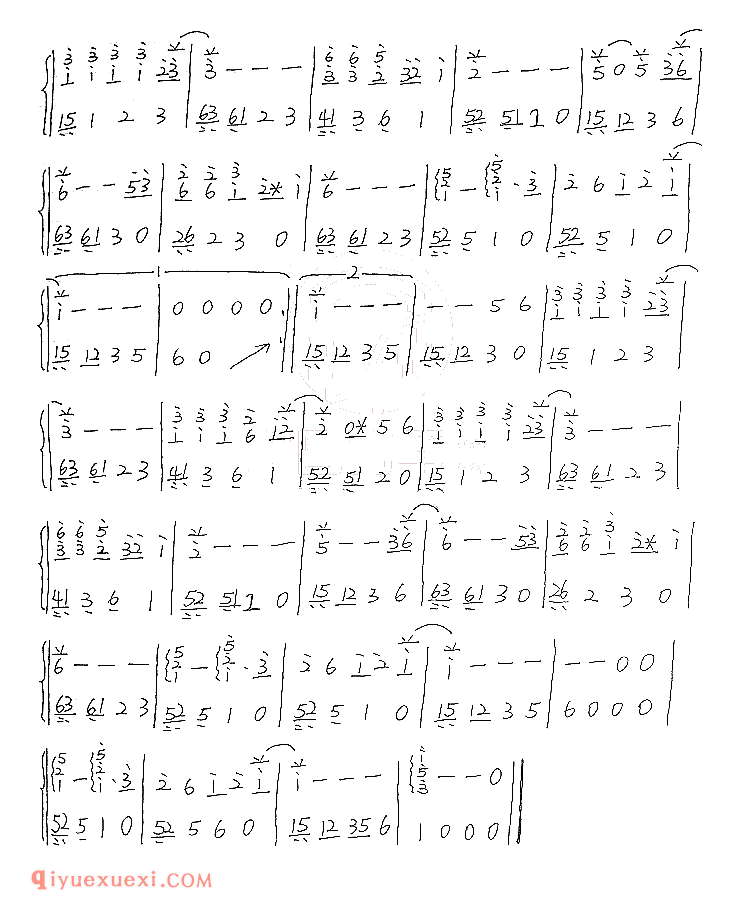 3 3 3 3 | 3 - - - | 6 6 5 | 2 - - - | 5 0 5 36 |
1 1 1 1 23 | | 3 3 2 32 1 |
15 1 2 3 | 63 61 2 3 | 41 3 6 1 | 52 51 1 0 | 15 12 3 6
6 - - 53 | 2 2 3 | 6 - - - | 5 - 5 · 3 | 2 6 1 2 1
6 6 1 2* 1 | 2 2
1 1
63 61 3 0 | 26 2 3 0 | 63 61 2 3 | 52 5 1 0 | 52 5 1 0
1 2
1 - - - | 0 0 0 0 | 1 - - - | - - 5 6 | 3 3 3 3
1 1 1 1 23
15 12 3 5 | 6 0 | 15 12 3 5 | 15 12 3 0 | 15 1 2 3
3 - - - | 3 3 3 2 | 2 0* 5 6 | 3 3 3 3 | 3 - - -
1 1 1 6 12 | 1 1 1 1 23
63 61 2 3 | 41 3 6 1 | 52 51 2 0 | 15 1 2 3 | 63 61 2 3
6 6 5 | 2 - - - | 5 - - 36 | 6 - - 53 | 2 2 3
3 3 2 32 1 | 6 6 1 2* 1
41 3 6 1 | 52 51 1 0 | 15 12 3 6 | 63 61 3 0 | 26 2 3 0
6 - - - | 5 - 5 · 3 | 2 6 1 2 1 | 1 - - - | - - 0 0
2 2
1 1
63 61 2 3 | 52 5 1 0 | 52 5 1 0 | 15 12 3 5 | 6 0 0 0
5 - 5 · 3 | 2 6 1 2 1 | 1 - - - | 1 - - 0
2 2 | 5
1 1 | 3
52 5 1 0 | 52 5 6 0 | 15 12 35 6 | 1 0 0 0
qiyuexuexi.COM